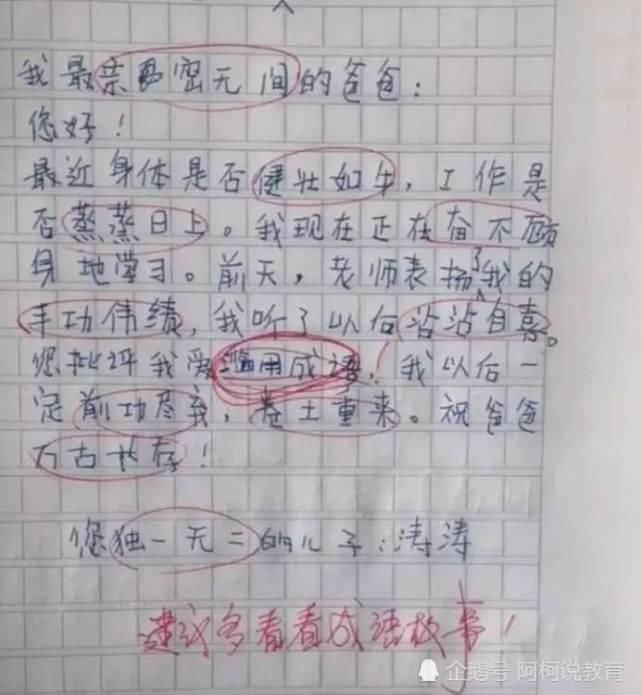 我最亲密无间的爸爸：
您好！
最近身体是否健壮如牛，工作是
否蒸蒸日上。我现在正在奋不顾
身地学习。前天，老师表扬了我的
丰功伟绩，我听了以后沾沾自喜。
您批评我爱滥用成语，我以后一
定前功尽弃，卷土重来。祝爸爸
万古长存！
您独一无二的儿子：涛涛
建议多看看成语故事！
企鹅号 阿柯说教育